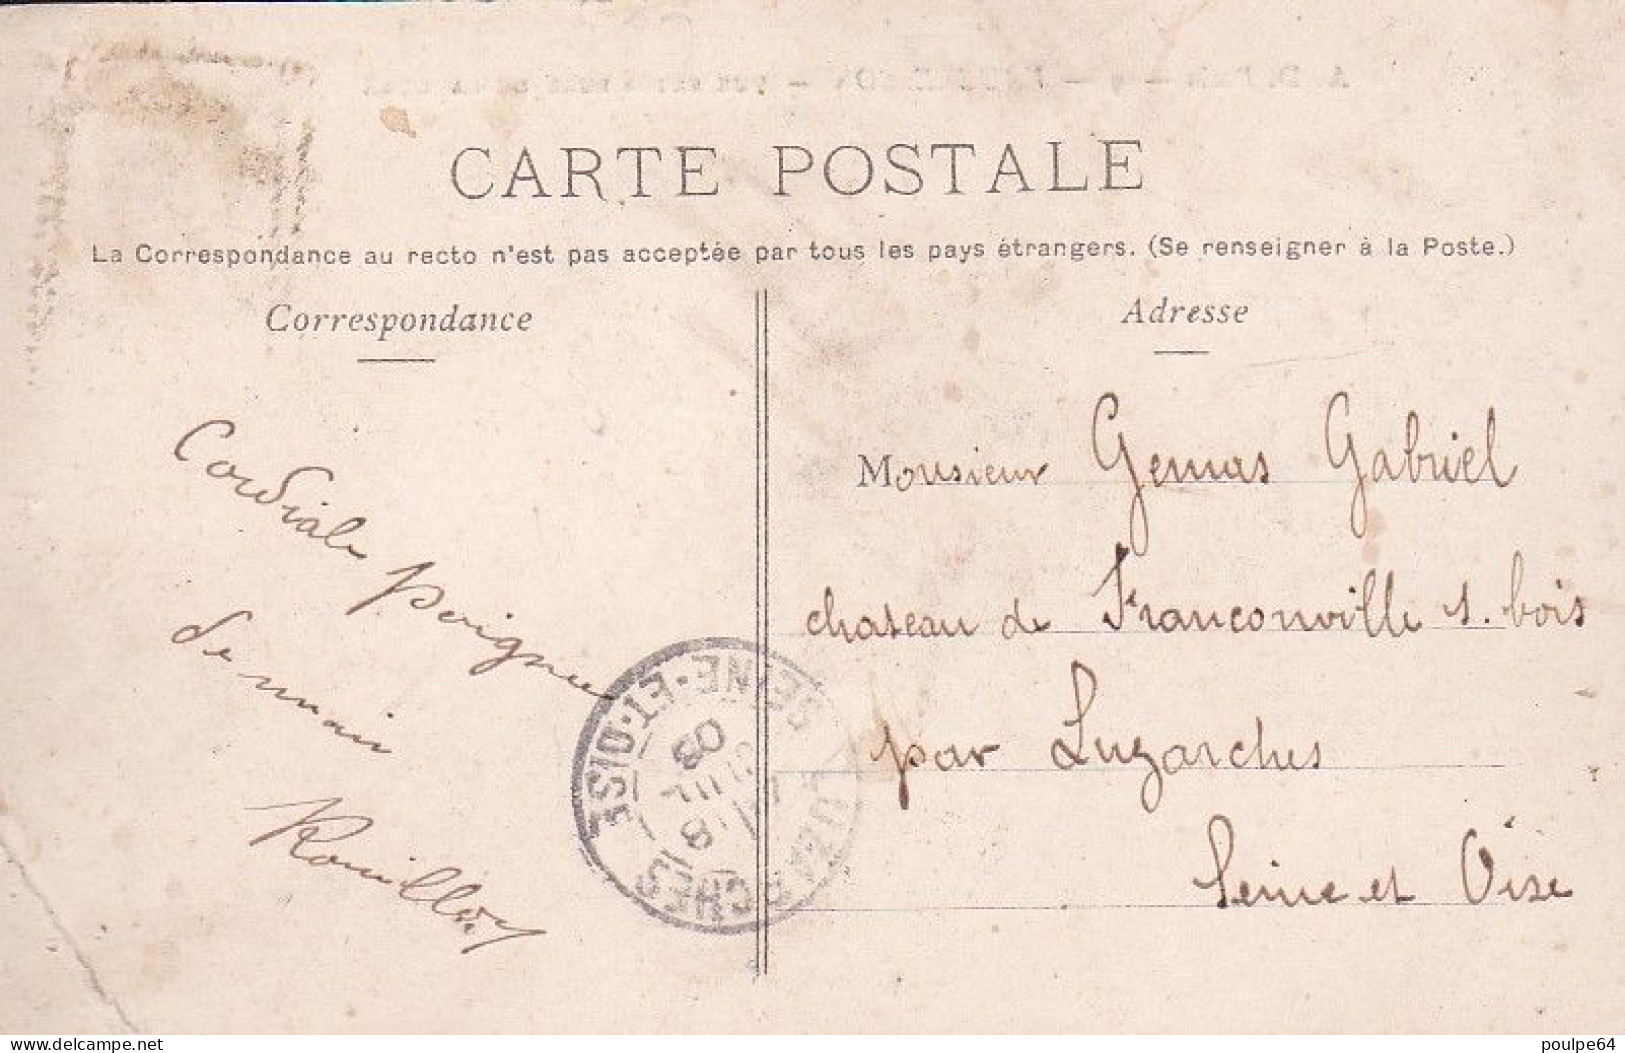 CARTE POSTALE
La Correspondance au recto n'est pas acceptée par tous les pays étrangers. (Se renseigner à la Poste.)
Correspondance
Cordiale poignee
de main
Rouilloy
Adresse
Monsieur Gemas Gabriel
chateau de Franconville s. bois
par Luzarches
Seine et Oise
LUZARCHES
SEINE-ET-OISE
8
JUIL
03
delcampe.net
poulpe64